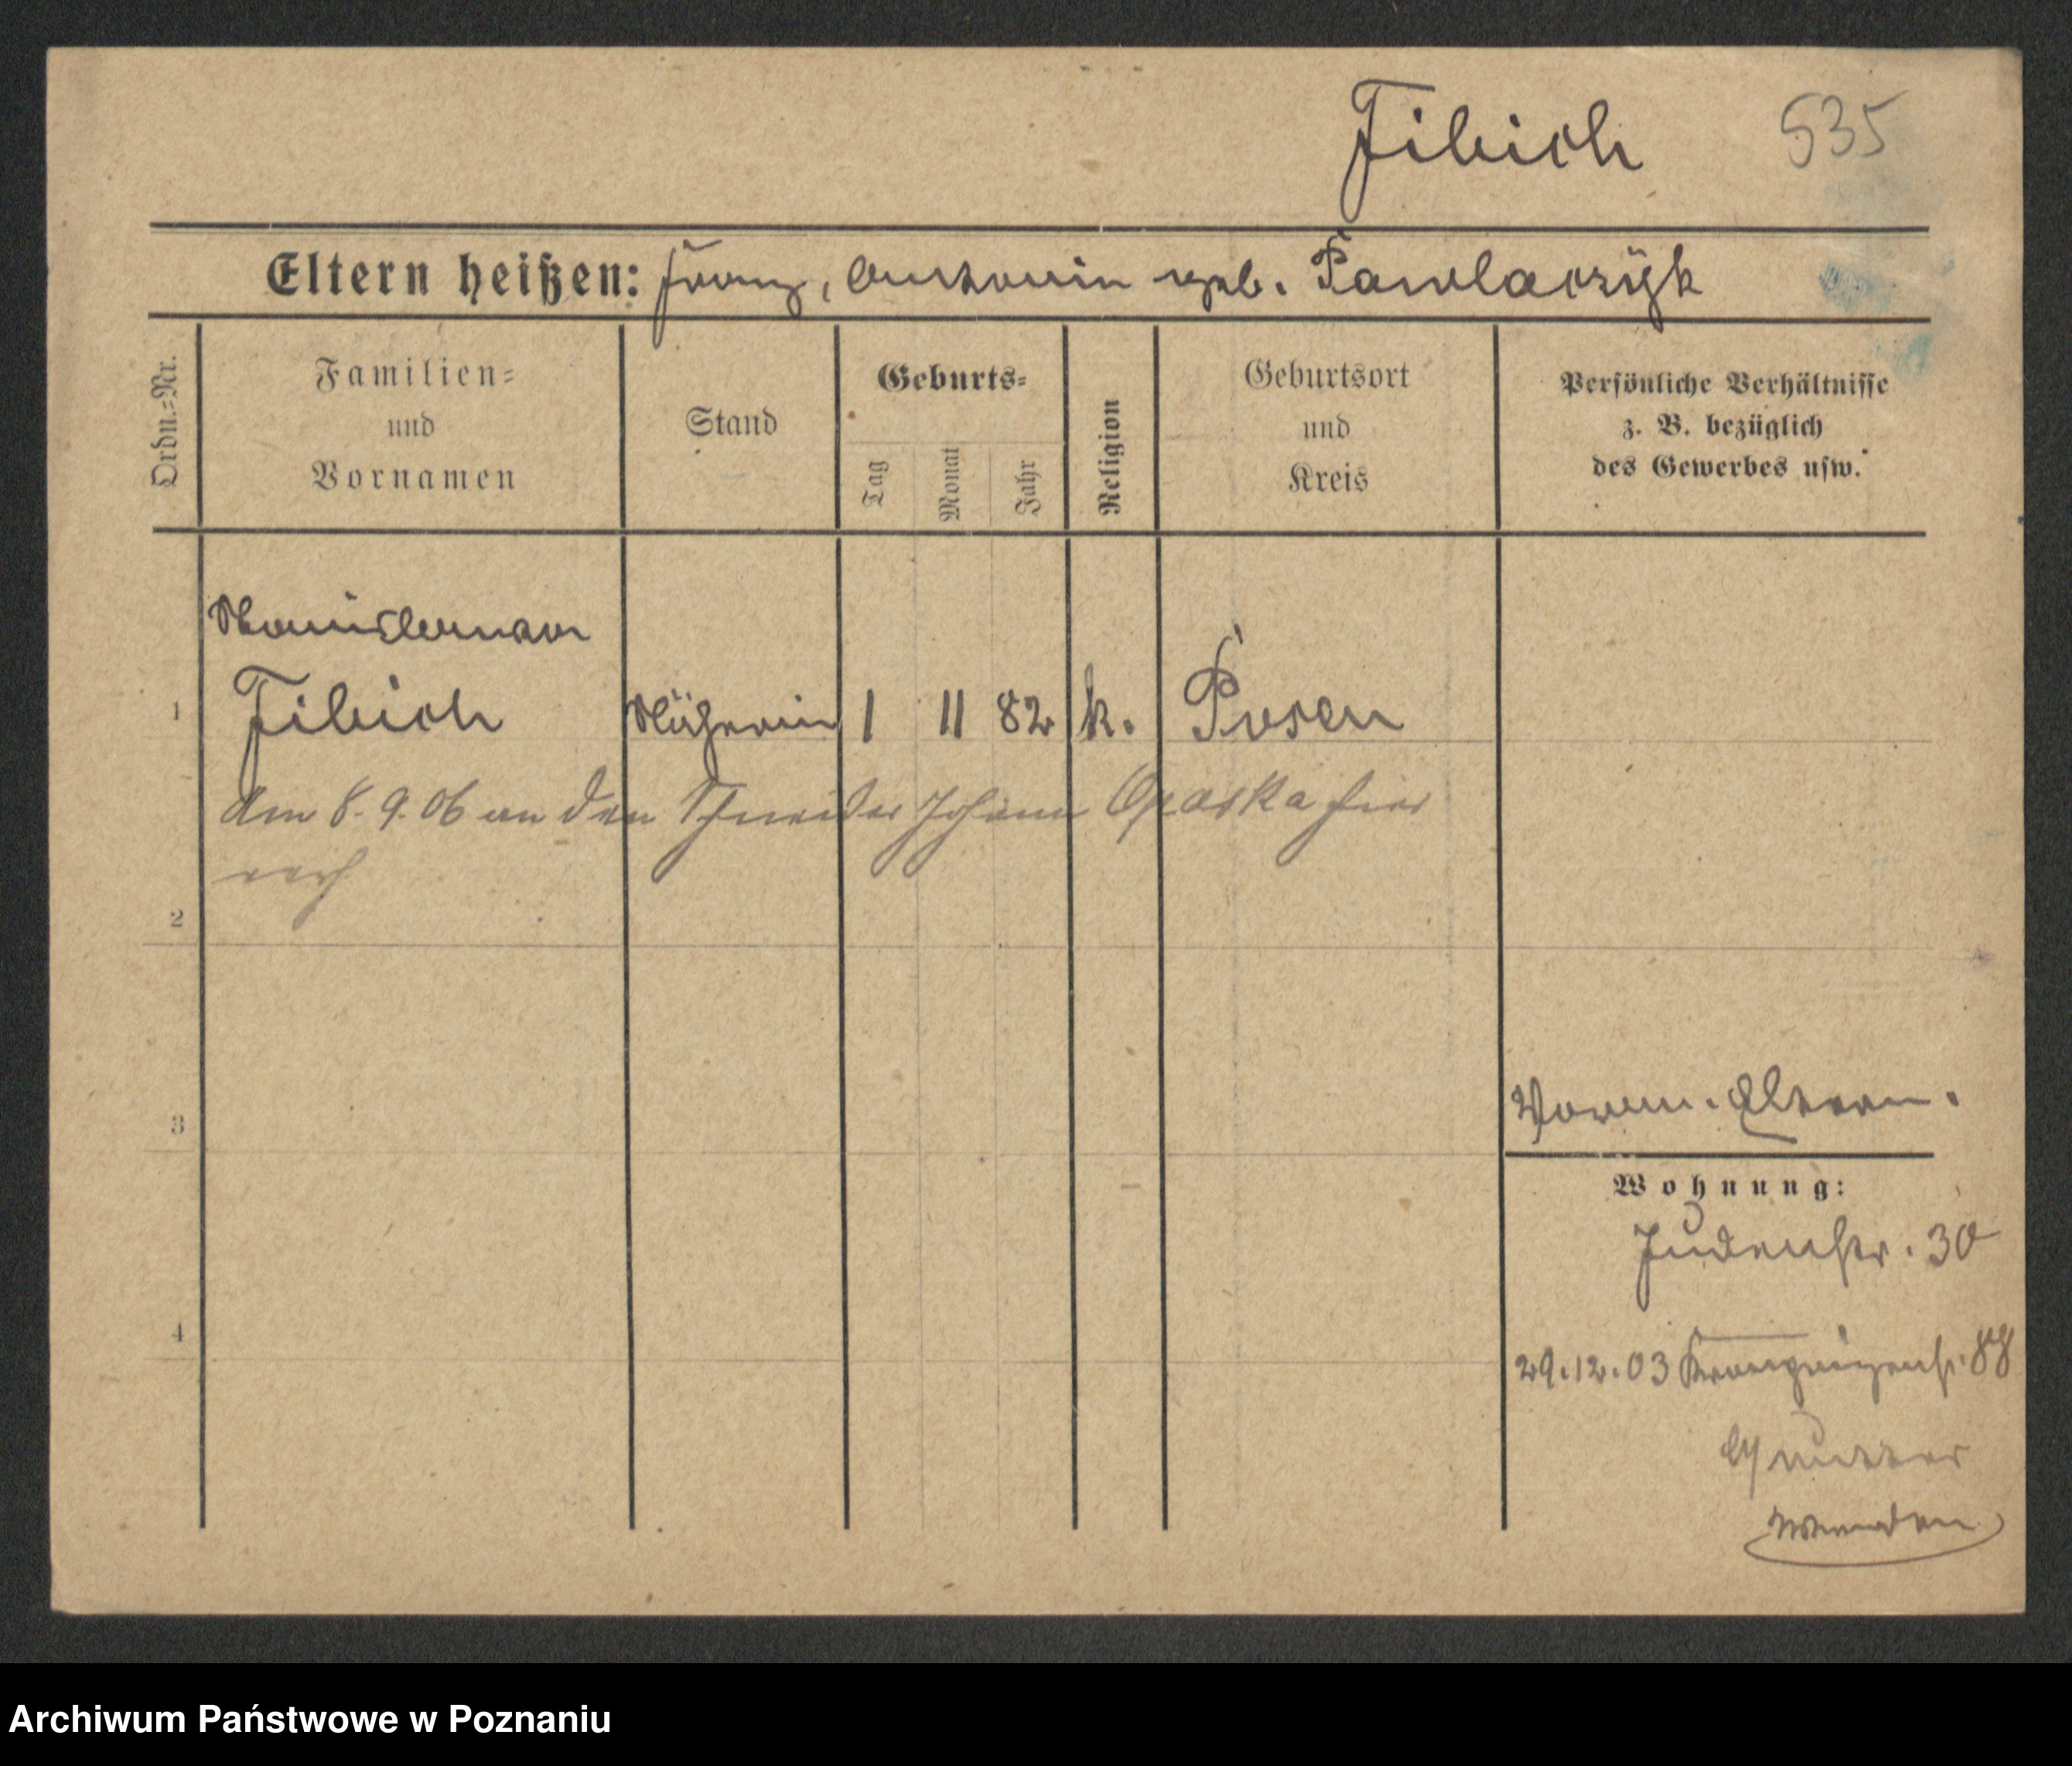 Fibich 535
Eltern heißen: Franz, Antonin geb. Pawlaczyk
Ordn.=Nr.
Familien=
und
Vornamen
Stand
Geburts=
Tag
Monat
Jahr
Religion
Geburtsort
und
Kreis
Persönliche Verhältnisse
z. B. bezüglich
des Gewerbes usw.
Stanislawa
1 Fibich Näherin 1 11 82 k. Posen
Am 8.9.06 an den Schneider Johann Opaska hier
verh
2
3
Vorm. Eltern.
Wohnung:
Judenstr. 30
4
29.12.03 Kronprinzenst. 88
Mutter
wenden
Archiwum Państwowe w Poznaniu